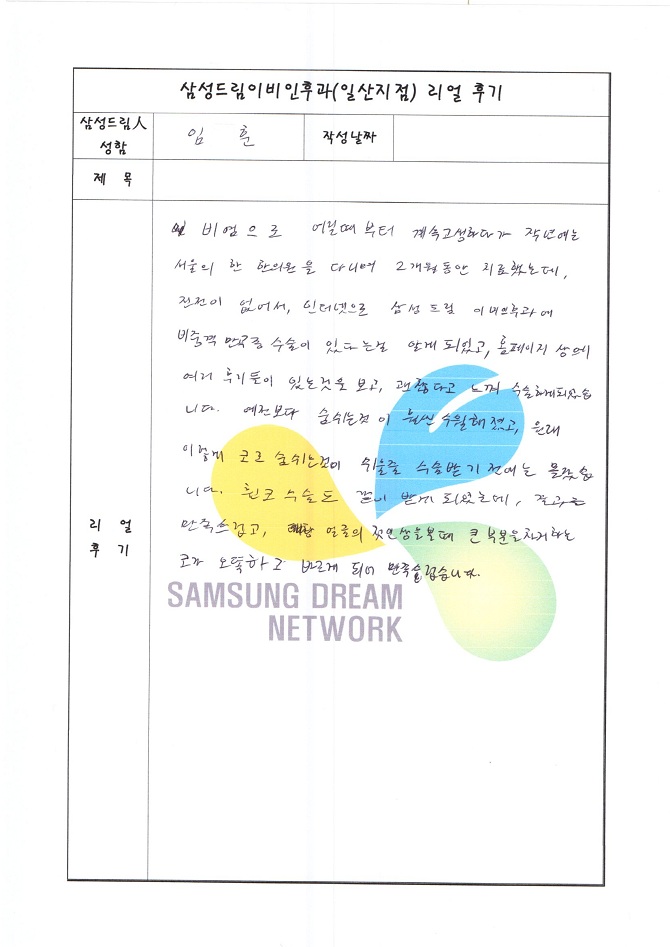 삼성드림이비인후과(일산지점) 리얼 후기
삼성드림人
성함
임 훈
작성날짜
제 목
비염으로 어릴때부터 계속고생하다가 작년에는
서울의 한 한의원을 다니며 2개월동안 치료했는데,
진전이 없어서, 인터넷으로 삼성드림 이비인후과에
비중격 만곡증 수술이 있다는걸 알게 되었고, 홈페이지 상에
여러 후기들이 있는것을 보고, 괜찮다고 느껴 수술하게되었습
니다. 예전보다 숨쉬는것이 훨씬 수월해졌고, 원래
이렇게 코로 숨쉬는것이 쉬울줄 수술받기 전에는 몰랐습
니다. 휜코 수술도 같이 받게 되었는데, 결과는
만족스럽고, 얼굴의 첫인상을볼때 큰 부분을차지하는
코가 오똑하고 바르게 되어 만족스럽습니다.
리 얼
후 기
SAMSUNG DREAM
NETWORK